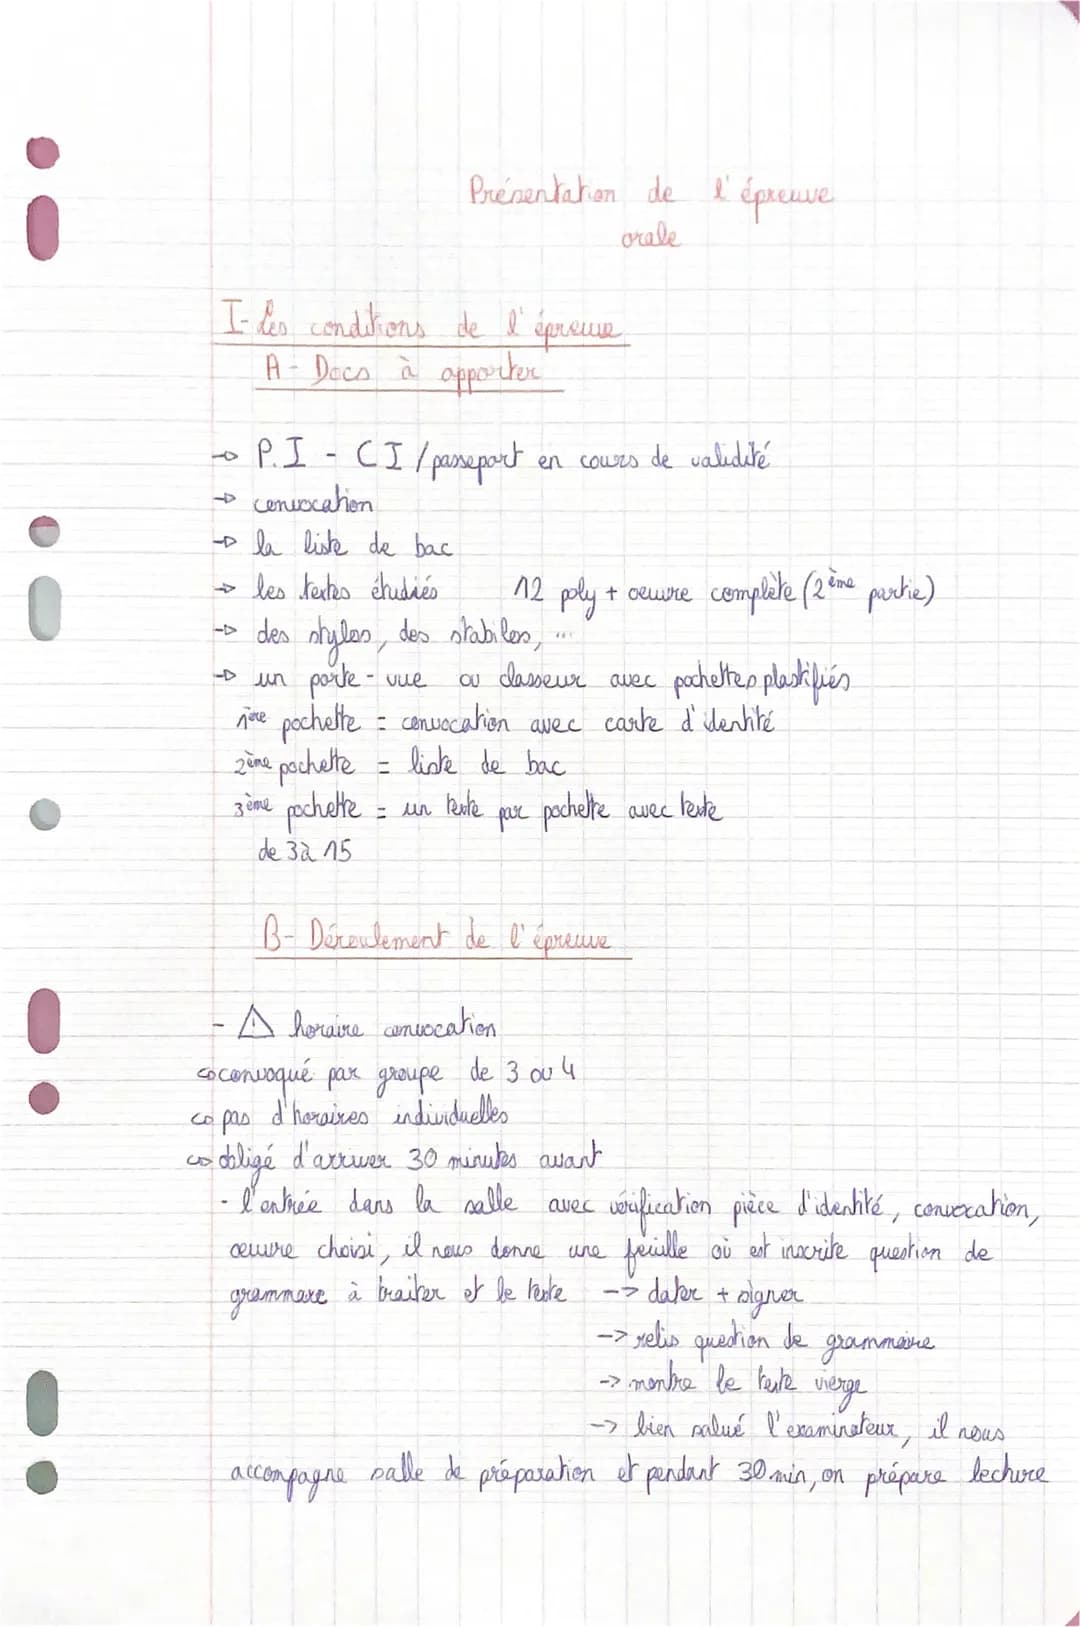 Présentation de l'épreuve
orale
I- Les conditions de l'épreuve
A - Docs à apporter
→ P.I - CI / passeport en cours de validité
→ convocation
→ la liste de bac
→ les textes étudiés 12 poly + oeuvre complète (2ème partie)
→ des stylos, des stabilos, ...
→ un porte-vue ou classeur avec pochettes plastifiés
1ère pochette = convocation avec carte d'identité
2ème pochette = liste de bac
3ème pochette = un texte par pochette avec texte
de 3 à 15
B- Déroulement de l'épreuve
- ⚠ horaire convocation
↪ convoqué par groupe de 3 ou 4
↪ pas d'horaires individuelles
↪ obligé d'arriver 30 minutes avant
- l'entrée dans la salle avec vérification pièce d'identité, convocation,
oeuvre choisi, il nous donne une feuille où est inscrite question de
grammaire à traiter et le texte --> dater + signer
--> relis question de grammaire
--> montre le texte vierge
--> bien salué l'examinateur, il nous
accompagne salle de préparation et pendant 30 min, on prépare lecture